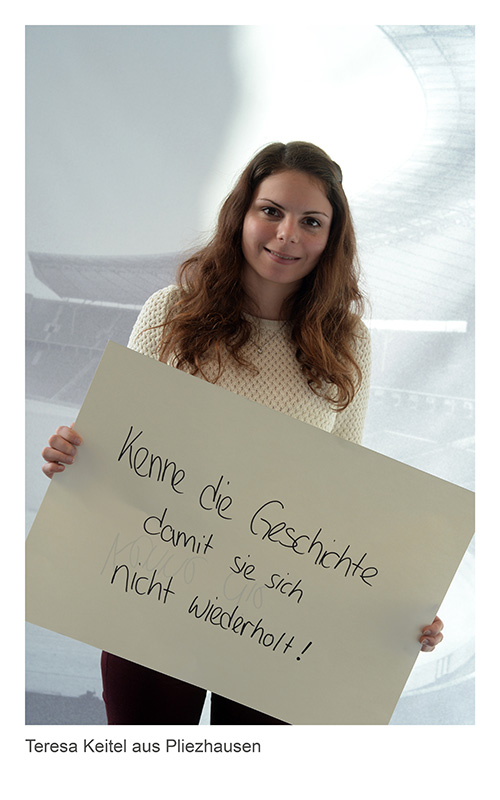 Kenne die Geschichte
damit sie sich
nicht wiederholt!
Teresa Keitel aus Pliezhausen